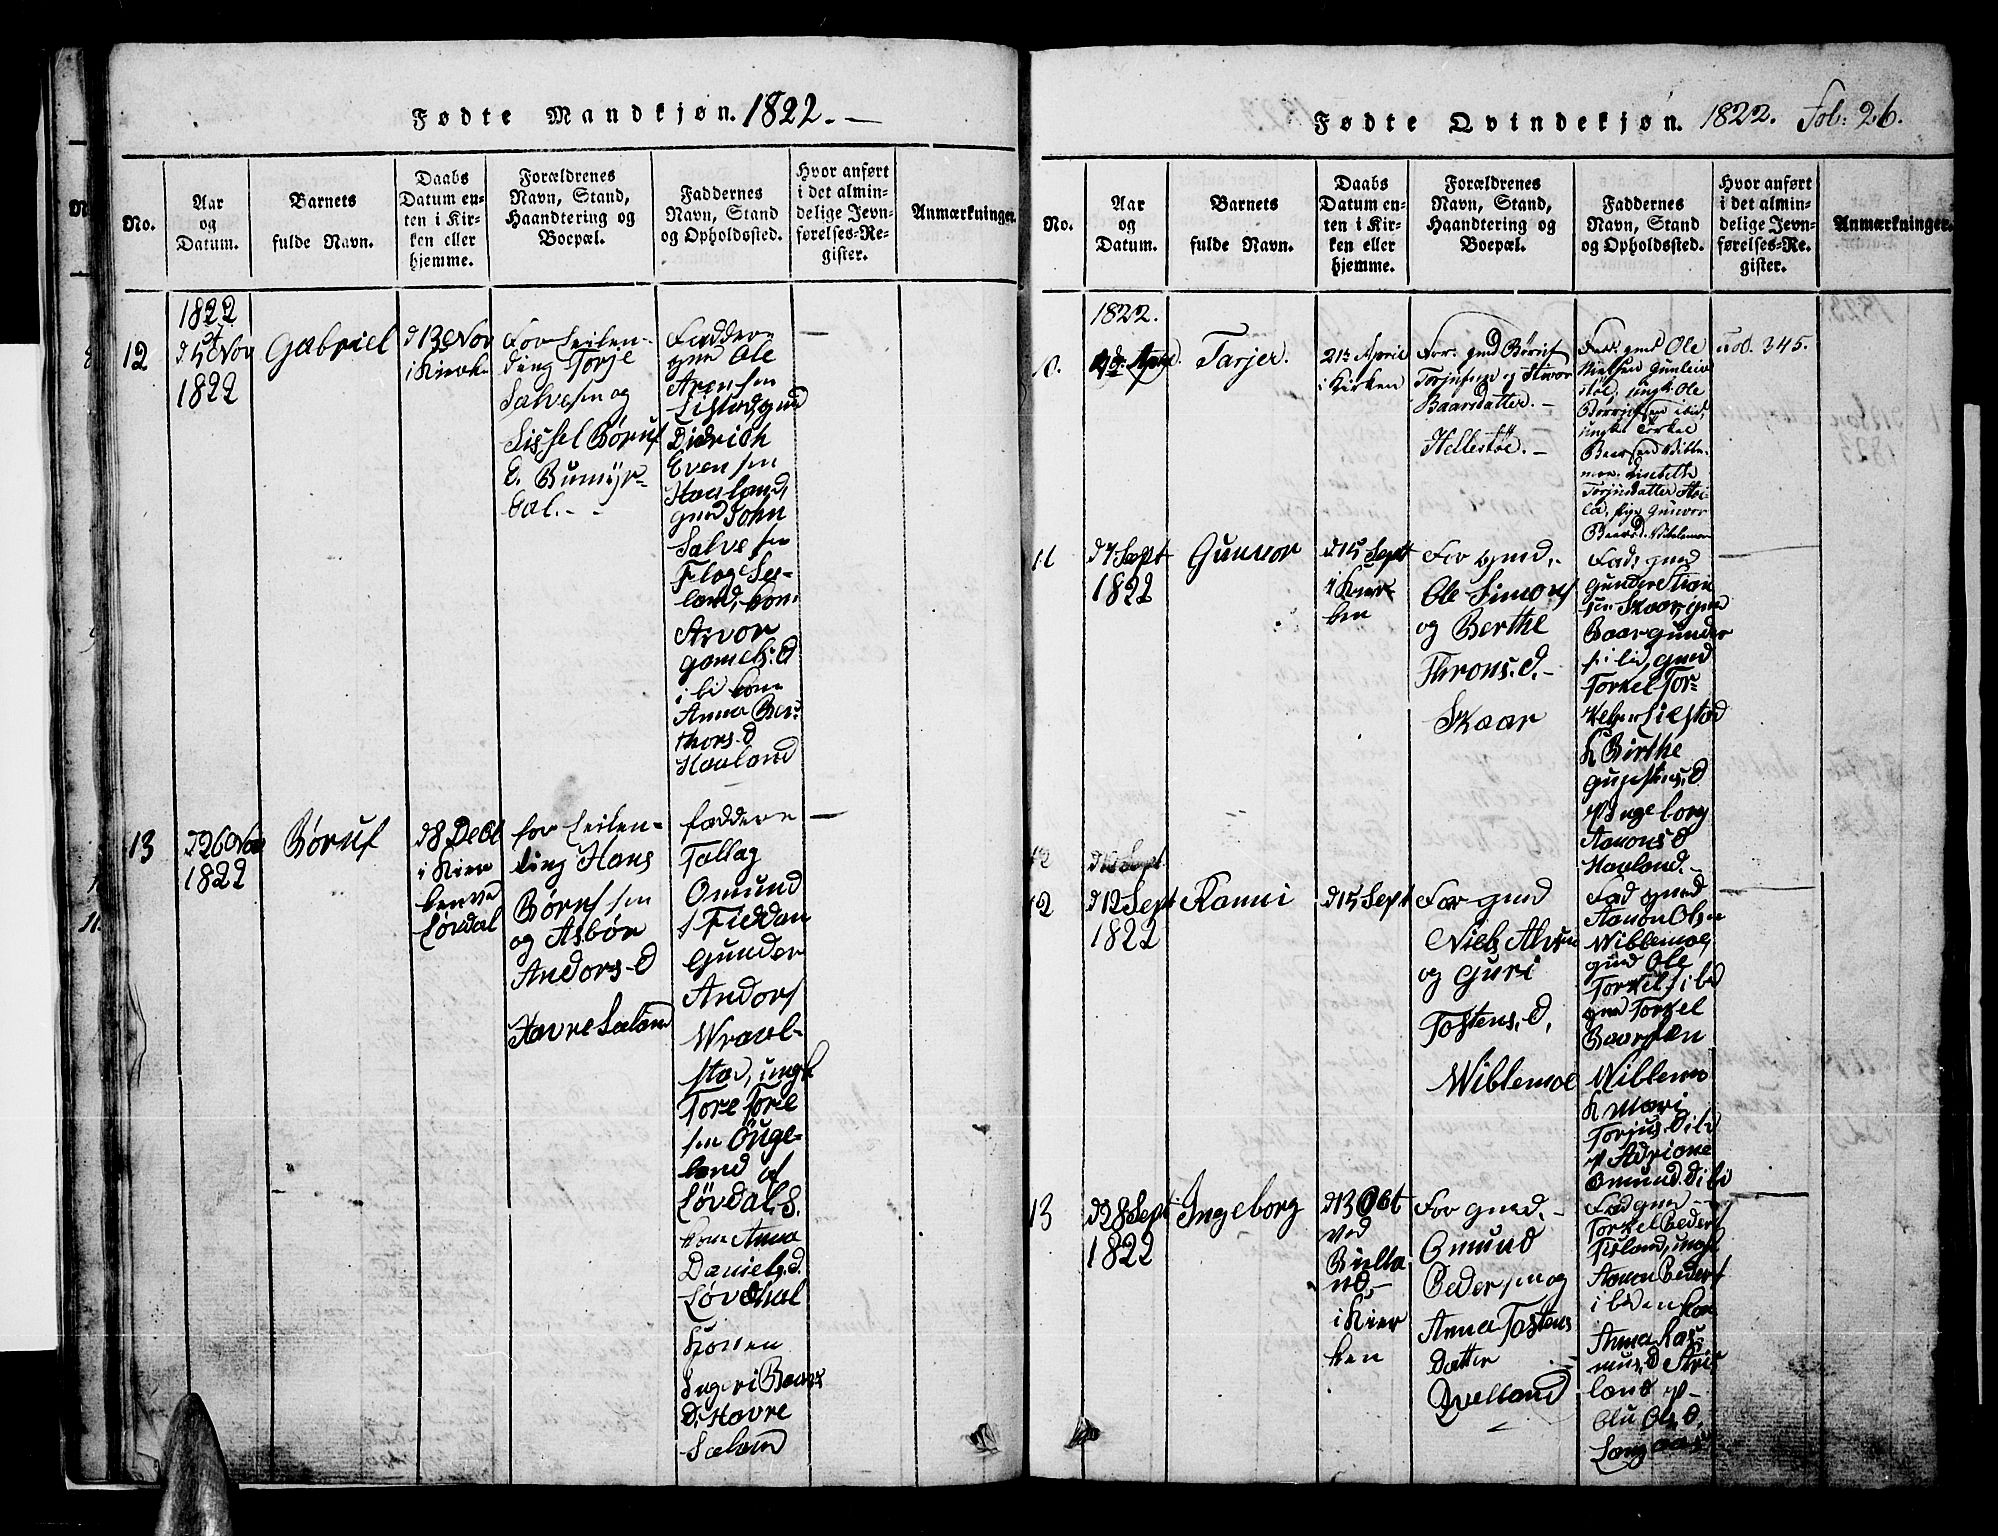 Fødte Mandkjøn. 1822.
No.
Aar
og
Datum.
Barnets
fulde Navn.
Daabs
Datum en-
ten i Kir-
ken eller
hjemme.
Forældrenes
Navn, Stand,
Haandtering og
Boepæl.
Faddernes
Navn, Stand
og Opholdssted.
Hvor anført
i det almin-
delige Jevn-
førelses-Re-
gister.
Anmærkninger.
1822
12
d 5 Nov
1822
Gabriel
d 13 Nov
i Kirk
For Leilen-
ding Torje
Salvesen og
Sissel Børuf
D.
Faddere
gmd Ole
Aronsen
gmd
Didrich
Evensen
Haaland,
gmd John
Salvesen
Flog See-
land, kone
Asvor
Gamels. D
i bi kone
Anna Ber-
thors. D
Haaland
13
d 26 Nov
1822
Børuf
d 8 Dec
i Kier
ken ve
Løvdal
for Leilen-
ding Hans
Børufsen
og Asbør
Andors. D
Havre Sæland
faddere
Tallag
Omund
s Fiddan
Gunder
Andors
Wraal-
stad, ungk
Tore Tore
sen Ønge-
land af
Løvdal S.
kone Anna
Daniels. d.
Løvdhal
Ingeri Baars
D. Havre
Sæland
Fødte Qvindekjøn. 1822. Fol: 26.
No.
Aar
og
Datum.
Barnets
fulde Navn.
Daabs
Datum en-
ten i Kir-
ken eller
hjemme.
Forældrenes
Navn, Stand,
Haandtering og
Boepæl.
Faddernes
Navn, Stand
og Opholdssted.
Hvor anført
i det almin-
delige Jevn-
førelses-Re-
gister.
Anmærkninger.
1822.
10.
Tarjer.
21de April
i Kirken
For: gmd Børuf
Torjusen og Asvor
Baarsdatter. -
Hellestøe. -
Fad: gmd Ole
Nielsen Gunlei
støl, ungk: Ole
ibid,
ungk: Torkel
Baarsen Wible-
moe, Lisbeth
Torjusdatter
pige Gunvor
Baarsd. Wiblemoe
Fol. 345.
11
d 7 Sept
1822
Gunvor
d 15 Sept
i Kier-
ken
For gmd.
Ole Simons
og Berthe
Throns. d. -
Skaar
Fad: gmd
Gunder
sen Skaar, gmd
Baar Gunder
s i bid, gmd
Torkel Tor-
kels
k Birthe
P Ingeborg
Aanons D
Haaland. -
12
d 12 Sept
12
d 12 Sept
1822
Ranni
d 15 Sept
For gmd
Niels
og Guri
Tostens. D.
Wiblemoe
Fad gmd
Aanon Olsen
Wiblemoe,
gmd Ole
Torkels i bd
gmd Torkel
Baarsen
Wiblemo
k Mari
Torjus. D i bd
P Adriane
Omund. D i bd
13
d 28 Sept
1822
Ingeborg
d 13 Oct
ved
i Kier
ken
For gmd. -
Omund
Pedersen og
Anna Tostens
datter
Qvelland
Fad gmd
Torkel Peders
ungk
Aanon Peders
i bd en kon
Anna Ras-
mus. D
land P -
Olu Ols. D